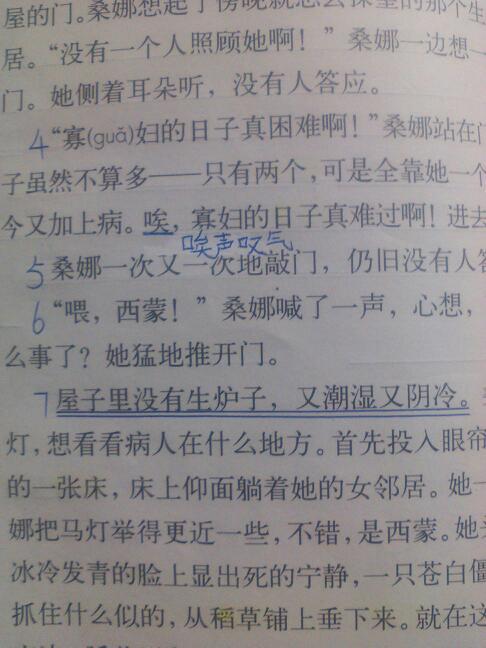 屋的门。桑娜想起了傍晚就怎么
居。“没有一个人照顾她啊！”桑娜一边想一
门。她侧着耳朵听，没有人答应。
4“寡(guǎ)妇的日子真困难啊！”桑娜站在门
子虽然不算多——只有两个，可是全靠她一个
今又加上病。唉，寡妇的日子真难过啊！进去
唉声叹气
5桑娜一次又一次地敲门，仍旧没有人答
6“喂，西蒙！”桑娜喊了一声，心想，
么事了？她猛地推开门。
7屋子里没有生炉子，又潮湿又阴冷。
灯，想看看病人在什么地方。首先投入眼帘
的一张床，床上仰面躺着她的女邻居。她一
娜把马灯举得更近一些，不错，是西蒙。她
冰冷发青的脸上显出死的宁静，一只苍白僵
抓住什么似的，从稻草铺上垂下来。就在这